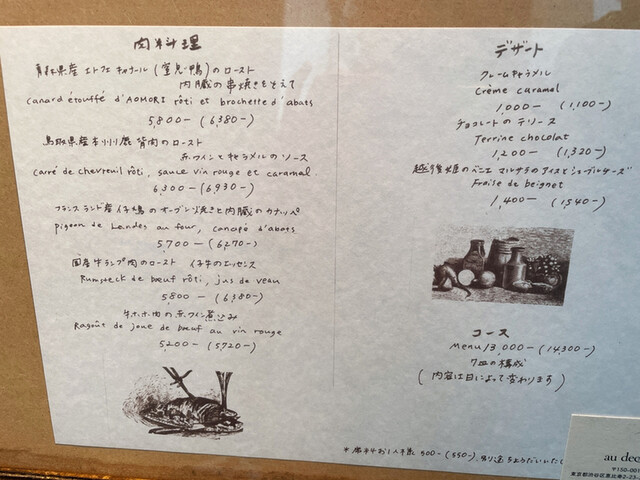 肉料理
青森県産 エトフェ キャナール (窒息鴨) のロースト
内臓の串焼きをそえて
canard étouffé d'AOMORI rôti et brochette d'abats
5,800- (6,380-)
鳥取県産 本州鹿 背肉のロースト
赤ワインとキャラメルのソース
carré de chevreuil rôti, sauce vin rouge et caramel
6,300- (6,930-)
フランス ランド産 仔鳩のオーブン焼きと内臓のカナッペ
pigeon de Landes au four, canapé d'abats
5,700- (6,270-)
国産牛ランプ肉のロースト 仔牛のエッセンス
Rumsteck de bœuf rôti, jus de veau
5,800- (6,380-)
牛ホホ肉の赤ワイン煮込み
Ragoût de joue de bœuf au vin rouge
5,200- (5,720-)
デザート
クレームキャラメル
Crème caramel
1,000- (1,100-)
チョコレートのテリーヌ
Terrine chocolat
1,200- (1,320-)
越後姫のベニエ マルサラのアイスとシェーブルチーズ
Fraise de beignet
1,400- (1,540-)
コース
Menu 13,000- (14,300-)
7皿の構成
(内容は日によって変わります)
お1人様 500- (550-).別途ちょうだいいたし
au dee
〒150-001
東京都渋谷区恵比寿2-23